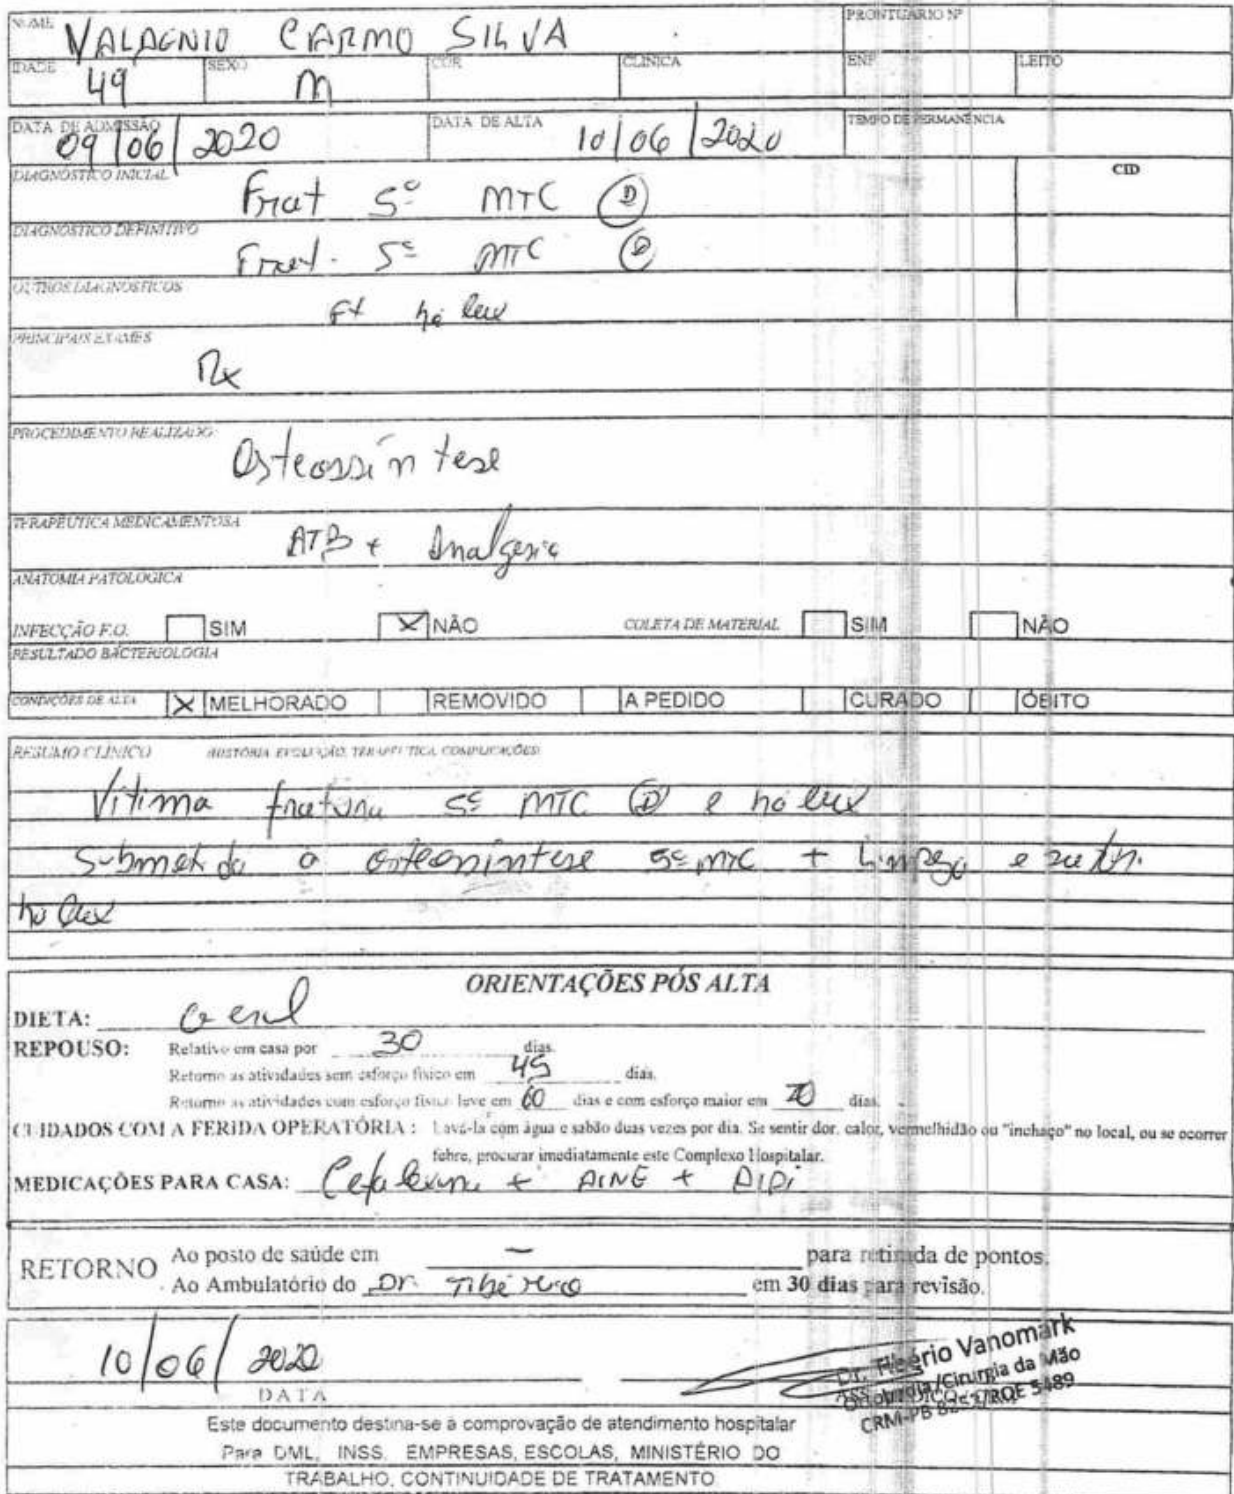 NOME VALDENIO CARMO SILVA PRONTUÁRIO Nº
IDADE 49 SEXO M COR CLINICA ENF LEITO
DATA DE ADMISSÃO 09/06/2020 DATA DE ALTA 10/06/2020 TEMPO DE PERMANÊNCIA
DIAGNÓSTICO INICIAL Frat 5º MTC (D) CID
DIAGNÓSTICO DEFINITIVO Frat. 5º MTC (D)
OUTROS DIAGNÓSTICOS Fx hálux
PRINCIPAIS EXAMES
Rx
PROCEDIMENTO REALIZADO:
Osteossíntese
TERAPÊUTICA MEDICAMENTOSA ATB + Analgesia
ANATOMIA PATOLOGICA
INFECÇÃO F.O. SIM X NÃO COLETA DE MATERIAL SIM NÃO
RESULTADO BACTERIOLOGIA
CONDIÇÕES DE ALTA X MELHORADO REMOVIDO A PEDIDO CURADO ÓBITO
RESUMO CLÍNICO (HISTÓRIA, EVOLUÇÃO, TERAPÊUTICA, COMPLICAÇÕES)
Vítima fratura 5º MTC (D) e hálux
Submetido a osteossíntese 5º MTC + Limpeza e sutura
hálux
ORIENTAÇÕES PÓS ALTA
DIETA: Geral
REPOUSO: Relativo em casa por 30 dias.
Retorno as atividades sem esforço físico em 45 dias.
Retorno as atividades com esforço físico leve em 60 dias e com esforço maior em 70 dias.
CUIDADOS COM A FERIDA OPERATÓRIA : Lavá-la com água e sabão duas vezes por dia. Se sentir dor, calor, vermelhidão ou "inchaço" no local, ou se ocorrer
febre, procurar imediatamente este Complexo Hospitalar.
MEDICAÇÕES PARA CASA: Cefalexina + AINE + DIPI
RETORNO Ao posto de saúde em — para retirada de pontos.
Ao Ambulatório do Dr. Tibério em 30 dias para revisão.
10/06/2020
DATA
Dr. Tibério Vanomark
Ortopedia/Cirurgia da Mão
CRM-PB 8253/RQE 5489
Este documento destina-se à comprovação de atendimento hospitalar
Para DML, INSS, EMPRESAS, ESCOLAS, MINISTÉRIO DO
TRABALHO, CONTINUIDADE DE TRATAMENTO.